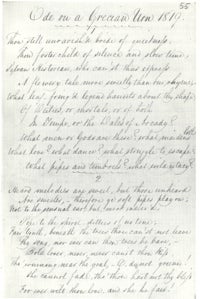 55
Ode on a Grecian Urn 1819.
1
Thou still unravish'd bride of quietness,
Thou foster-child of silence and slow time,
Sylvan Historian, who can'st thus express
A flowery tale more sweetly than our rhyme:
What leaf-fring'd legend haunts about thy shape
Of Deities or mortals, or of both,
In Tempe, or the Dales of Arcady?
What men or Gods are these? what maidens loth?
What love? what dance? what struggle to escape?
What pipes and timbrels? what wild ecstasy?
2
Heard melodies are sweet, but those unheard
Are sweeter; therefore ye soft pipes play on;
Not to the sensual ear; but, more endear'd,
Pipe to the spirit ditties of no tone:
Fair youth, beneath the trees thou can'st not leave
Thy song, nor ever can those trees be bare;
Bold lover, never, never canst thou kiss
Though winning near the goal, O do not grieve!
She cannot fade, tho' thou hast not thy bliss
For ever wilt thou love, and she be fair!